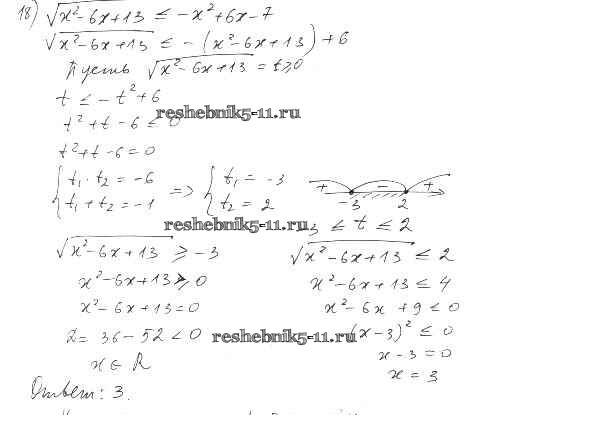 18) √x²-6x+13 ≤ -x²+6x-7
√x²-6x+13 ≤ -(x²-6x+13)+6
Пусть √x²-6x+13 = t ≥ 0
t ≤ -t²+6
reshebnik5-11.ru
t²+t-6 ≤ 0
t²+t-6=0
{ t₁·t₂ = -6 => { t₁ = -3 + - +
t₁+t₂ = -1 t₂ = 2 -3 2
reshebnik5-11.ru -3 ≤ t ≤ 2
√x²-6x+13 ≥ -3 √x²-6x+13 ≤ 2
x²-6x+13 ≥ 0 x²-6x+13 ≤ 4
x²-6x+13=0 x²-6x+9 ≤ 0
D = 36-52 < 0 reshebnik5-11.ru (x-3)² ≤ 0
x ∈ R x-3=0
x = 3
Ответ: 3.